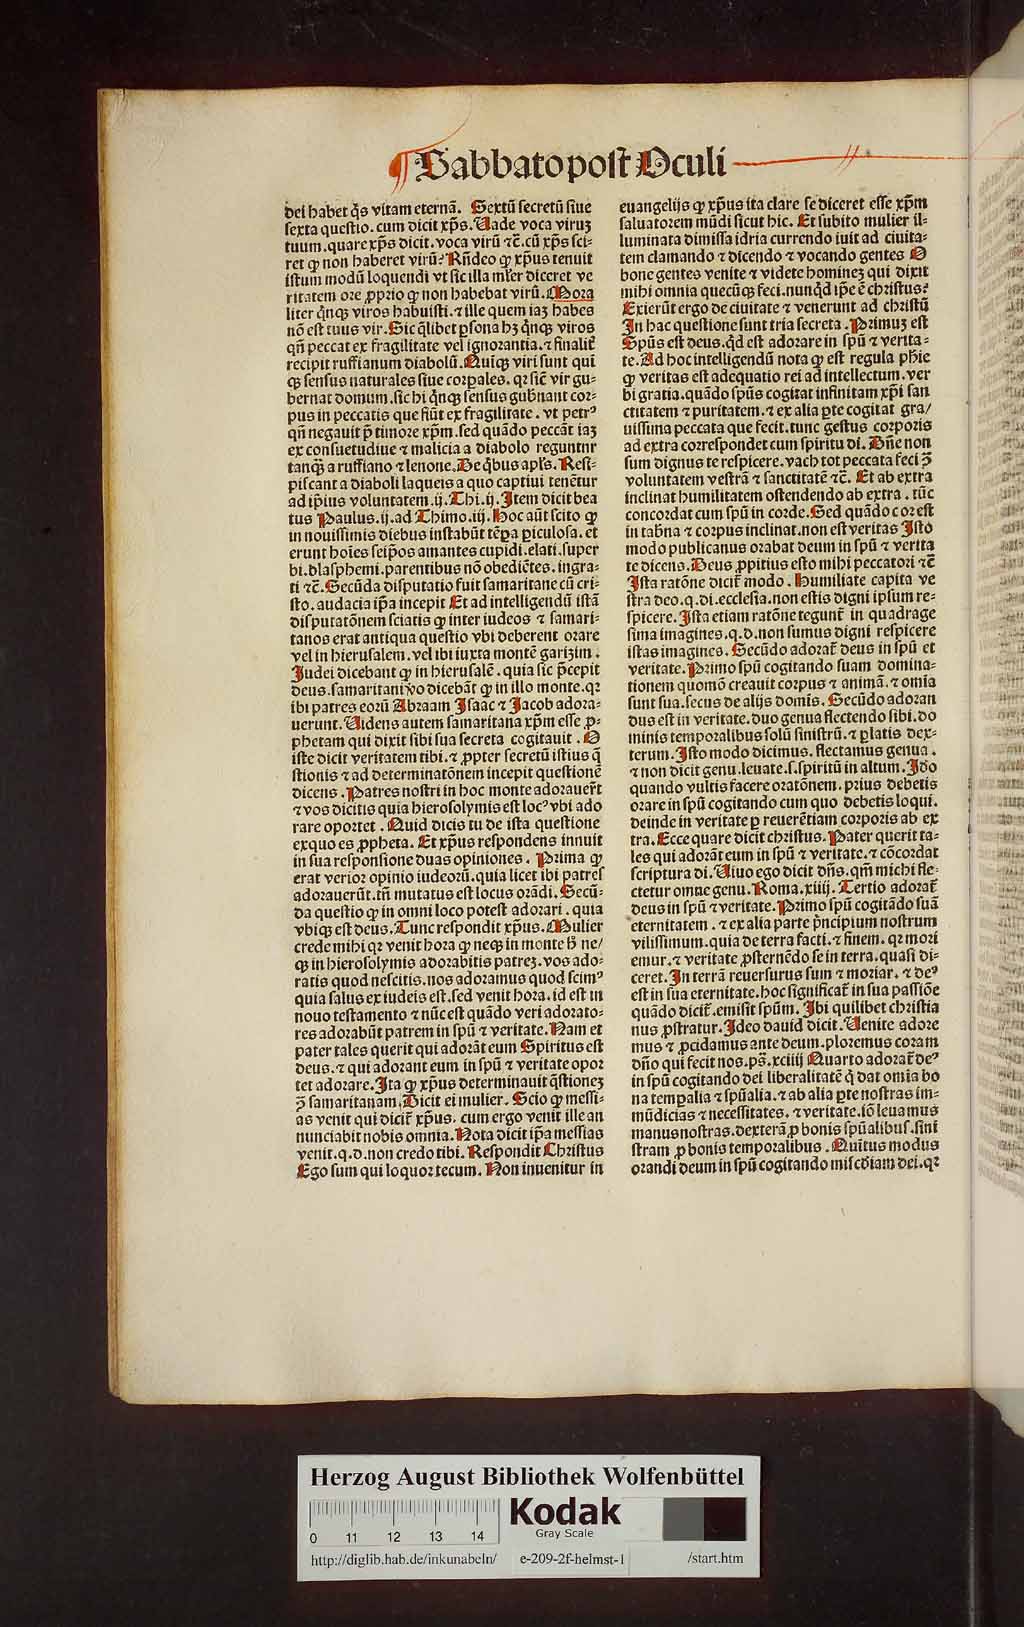 Sabbato post Oculi
dei habet q̃s vitam eternã. Sextũ secretũ siue
sexta questio. cum dicit xp̃s. Uade voca viruʒ
tuum. quare xp̃s dicit. voca virũ ⁊c̃. cũ xp̃s sci-
ret ꝙ non haberet virũ? Rñdeo ꝙ xp̃us tenuit
istum modũ loquendi vt sic illa mĺier diceret ve
ritatem ore ꝓprio ꝙ non habebat virũ. Mora
liter q̃nqꝫ viros habuisti. ⁊ ille quem iaʒ habes
nõ est tuus vir. Sic q̃libet ꝑsona hʒ q̃nqꝫ viros
qñ peccat ex fragilitate vel ignorantia. ⁊ finalit̃
recipit ruffianum diabolũ. Quiqꝫ viri sunt quĩ
qꝫ sensus naturales siue corꝑales. qꝛ sic̃ vir gu-
bernat domum. sic hi q̃nqꝫ sensus gub̃nant cor-
pus in peccatis que fiũt ex fragilitate. vt petrꝰ
qñ negauit p̃ timore xp̃m. sed quãdo peccãt iaʒ
ex consuetudiue ⁊ malicia a diabolo reguntnr
tanqꝫ̃ a ruffiano ⁊ lenone. De q̃bus apĺs. Resi-
piscant a diaboli laqueis a quo captiui tenẽtur
ad ip̃ius voluntatem. ij. Thi. ij. Item dicit bea
tus Paulus. ij. ad Thimo. iij. Hoc aũt scito ꝙ
in nouissimis diebus instabũt tẽꝑa ꝑiculosa. et
erunt hoĩes seip̃os amantes cupidi. elati. super
bi. blasphemi. parentibus nõ obediẽtes. ingra-
ti ⁊c̃. Secũda disputatio fuit samaritane cũ cri-
sto. audacia ip̃a incepit Et ad intelligendũ istã
disputatõnem sciatis ꝙ inter iudeos ⁊ samari-
tanos erat antiqua questio vbi deberent orare
vel in hierusalem. vel ibi iuxta montẽ garizim.
Judei dicebant ꝙ in hierusalẽ. quia sic p̃cepit
deus. samaritani ṽo dicebãt ꝙ in illo monte. qꝛ
ibi patres eorũ Abraam Isaac ⁊ Jacob adora-
uerunt. Uidens autem samaritana xp̃m esse ꝓ-
phetam qui dixit sibi sua secreta cogitauit. O
iste dicit veritatem tibi. ⁊ ꝓpter secretũ istius q̃
stionis ⁊ ad determinatõnem incepit questionẽ
dicens. Patres nostri in hoc monte adorauer̃t
⁊ vos dicitis quia hierosolymis est locꝰ vbi ado
rare oportet. Quid dicis tu de ista questione
exquo es ꝓpheta. Et xp̃us respondens innuit
in sua responsione duas opiniones. Prima ꝙ
erat verior opinio iudeorũ. quia licet ibi patres
adorauerũt. tñ mutatus est locus orãdi. Secũ-
da questio ꝙ in omni loco potest adorari. quia
vbiqꝫ est deus. Tunc respondit xp̃us. Mulier
crede mihi qꝛ venit hora ꝙ neqꝫ in monte h̃ ne/
qꝫ in hierosolymis adorabitis patreʒ. vos ado-
ratis quod nescitis. nos adoramus quod scimꝰ
quia salus ex iudeis est. sed venit hora. id est in
nouo testamento ⁊ nũc est quãdo veri adorato-
res adorabũt patrem in spũ ⁊ veritate. Nam et
pater tales querit qui adorãt eum Spiritus est
deus. ⁊ qui adorant eum in spũ ⁊ veritate opor
tet adorare. Ita ꝙ xp̃us determinauit q̃stioneʒ
ꝫ̃ samaritanam. Dicit ei mulier. Scio ꝙ messi-
as venit qui dicit̃ xp̃us. cum ergo venit ille an
nunciabit nobis omnia. Nota dicit ip̃a messias
venit. q. d. non credo tibi. Respondit Christus
Ego sum qui loquor tecum. Non inuenitur in
euangelijs ꝙ xp̃us ita clare se diceret esse xp̃m
saluatorem mũdi sicut hic. Et subito mulier il-
luminata dimissa idria currendo iuit ad ciuita-
tem clamando ⁊ dicendo ⁊ vocando gentes O
bone gentes venite ⁊ videte homineʒ qui dixit
mihi omnia quecũqꝫ feci. nunq̃d ip̃e ẽ christus?
Exierũt ergo de ciuitate ⁊ venerunt ad christũ
In hac questione sunt tria secreta. Primuʒ est
Spũs est deus. q̃d est adorare in spũ ⁊ verita-
te. Ad hoc intelligendũ nota ꝙ est regula ph̃ie
ꝙ veritas est adequatio rei ad intellectum. ver
bi gratia. quãdo spũs cogitat infinitam xp̃i san
ctitatem ⁊ puritatem. ⁊ ex alia ꝑte cogitat gra/
uissima peccata que fecit. tunc gestus corporis
ad extra correspondet cum spiritu di. Dñe non
sum dignus te respicere. vach tot peccata feci ꝫ̃
voluntatem vestrã ⁊ sanctitatẽ ⁊c̃. Et ab extra
inclinat humilitatem ostendendo ab extra. tũc
concordat cum spũ in corde. Sed quãdo cor est
in tab̃na ⁊ corpus inclinat. non est veritas Isto
modo publicanus orabat deum in spũ ⁊ verita
te dicens. Deus ꝓpitius esto mihi peccatori ⁊c̃
Ista ratõne dicit̃ modo. Humiliate capita ve
stra deo. q. di. ecclesia. non estis digni ipsum re-
spicere. Ista etiam ratõne tegunt̃ in quadrage
sima imagines. q. d. non sumus digni respicere
istas imagines. Secũdo adorat̃ deus in spũ et
veritate. Primo spũ cogitando suam domina-
tionem quomõ creauit corpus ⁊ animã. ⁊ omĩa
sunt sua. secus de alijs domis. Secũdo adoran
dus est in veritate. duo genua flectendo sibi. do
minis temporalibus solũ sinistrũ. ⁊ ꝑlatis dex-
terum. Isto modo dicimus. flectamus genua.
⁊ non dicit genu. leuate. s. spiritũ in altum. Ido
quando vultis facere oratõnem. prius debetis
orare in spũ cogitando cum quo debetis loqui.
deinde in veritate ꝑ reuerẽtiam corporis ab ex
tra. Ecce quare dicit christus. Pater querit ta-
les qui adorãt eum in spũ ⁊ veritate. ⁊ cõcordat
scriptura di. Uiuo ego dicit dñs. qm̃ michi fle-
ctetur omne genu. Roma. xiiij. Tertio adorat̃
deus in spũ ⁊ veritate. Primo spũ cogitãdo suã
eternitatem. ⁊ ex alia parte p̃ncipium nostrum
vilissimum. quia de terra facti. ⁊ finem. qꝛ mori
emur. ⁊ veritate ꝓsternẽdo se in terra. quasi di-
ceret. In terrã reuersurus sum ⁊ moriar. ⁊ deꝰ
est in sua eternitate. hoc significat̃ in sua passiõe
quãdo dicit̃. emisit spũm. Ibi quilibet christia
nus ꝓstratur. Ideo dauid dicit. Uenite adore
mus ⁊ ꝓcidamus ante deum. ploremus coram
dño qui fecit nos. ps̃. xciiij Quarto adorat̃ deꝰ
in spũ cogitando dei liberalitatẽ q̃ dat omĩa bo
na temꝑalia ⁊ spũalia. ⁊ ab alia ꝑte nostras im-
mũdicias ⁊ necessitates. ⁊ veritate. iõ leuamus
manus nostras. dexterã ꝓ bonis spũalibus. sini
stram ꝓ bonis temporalibus. Quĩtus modus
orandi deum in spũ cogitando misc̃diam dei. qꝛ
Herzog August Bibliothek Wolfenbüttel
0 11 12 13 14
Kodak
Gray Scale
http://diglib.hab.de/inkunabeln/ e-209-2f-helmst-1 /start.htm